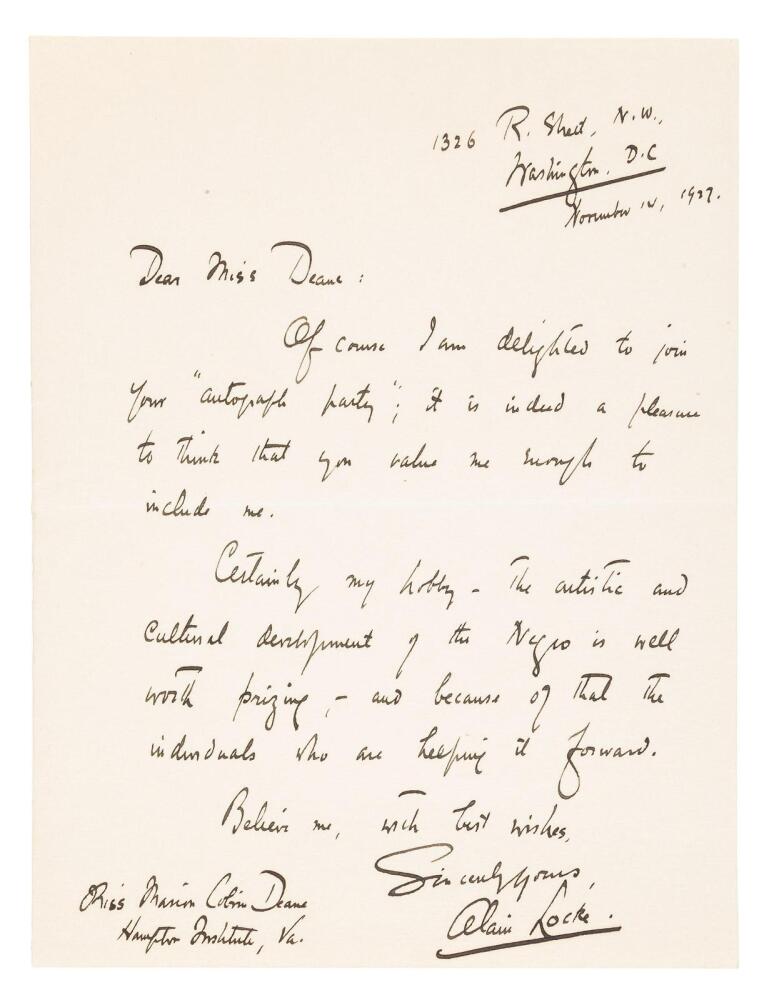 1326 R. Street, N.W.,
Washington. D.C
November 14, 1937.
Dear Miss Deane :
Of course I am delighted to join
your "autograph party"; it is indeed a pleasure
to think that you value me enough to
include me.
Certainly my hobby - the artistic and
cultural development of the Negro is well
worth prizing, - and because of that the
individuals who are helping it forward.
Believe me, with best wishes,
Sincerely yours,
Alain Locke.
Miss Marion Deane
Hampton Institute, Va.